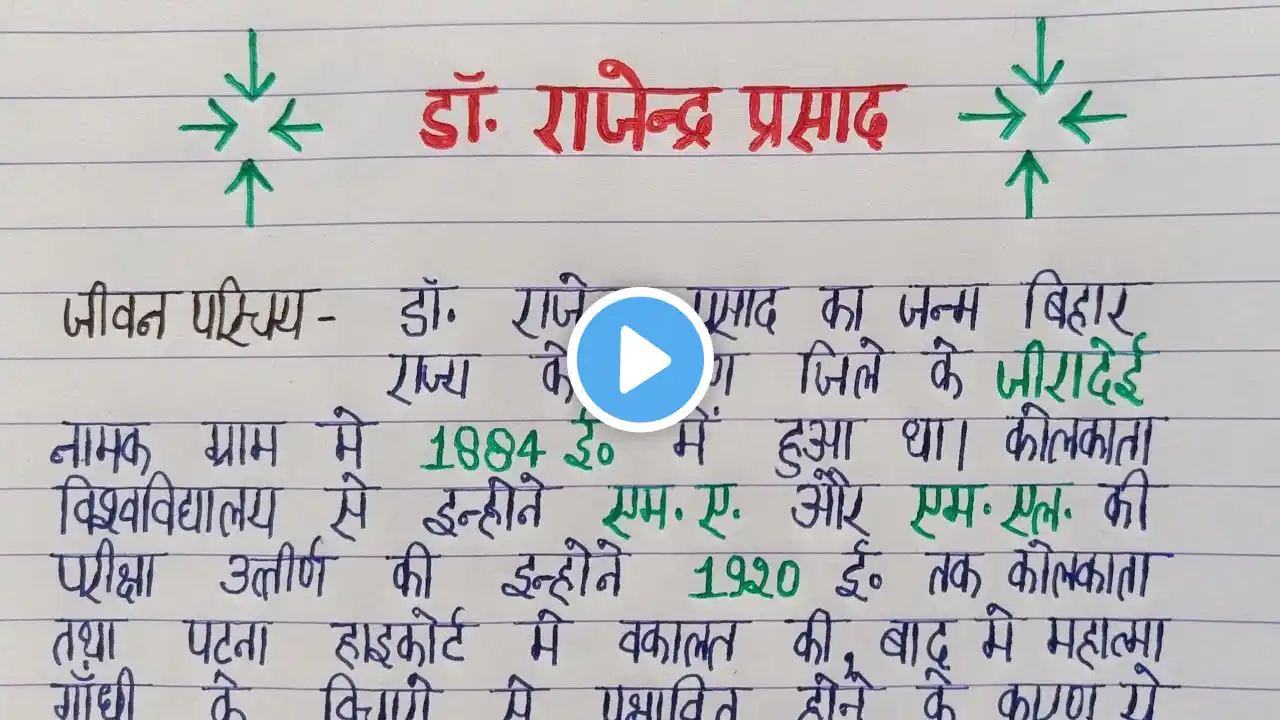 डॉ. राजेन्द्र प्रसाद
जीवन परिचय - डॉ. प्रसाद का जन्म बिहार
राज्य के जिले के जीरादेई
नामक ग्राम मे 1884 ई० में हुआ था। कोलकाता
विश्वविद्यालय से इन्होने एम. ए. और एम. एल. की
परीक्षा उत्तीर्ण की इन्होने 1920 ई० तक कोलकाता
तथा पटना हाइकोर्ट मे वकालत की, बाद मे महात्मा
गाँधी के विचारो से प्रभावित होने के कारण ये